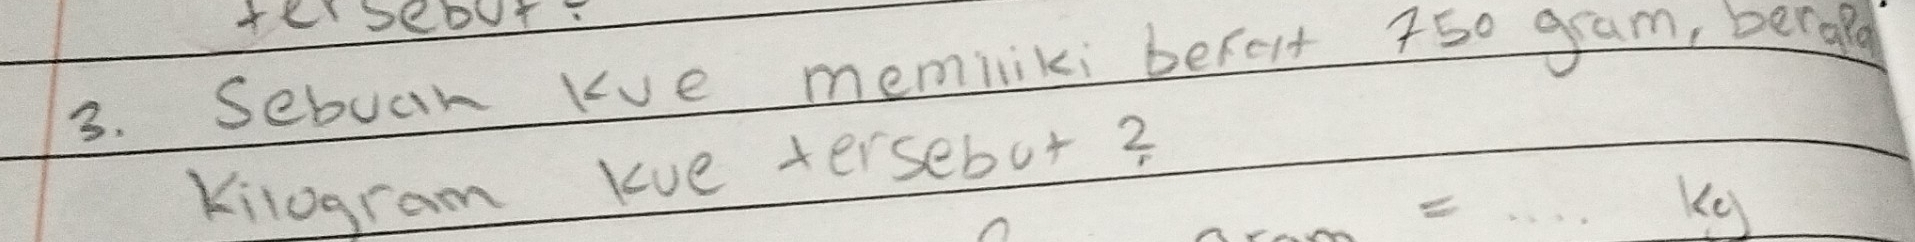 tersebut?
3. Sebuah kue memiliki berat 750 gram, berapa
Kilogram kue tersebut?
gram = .... kg